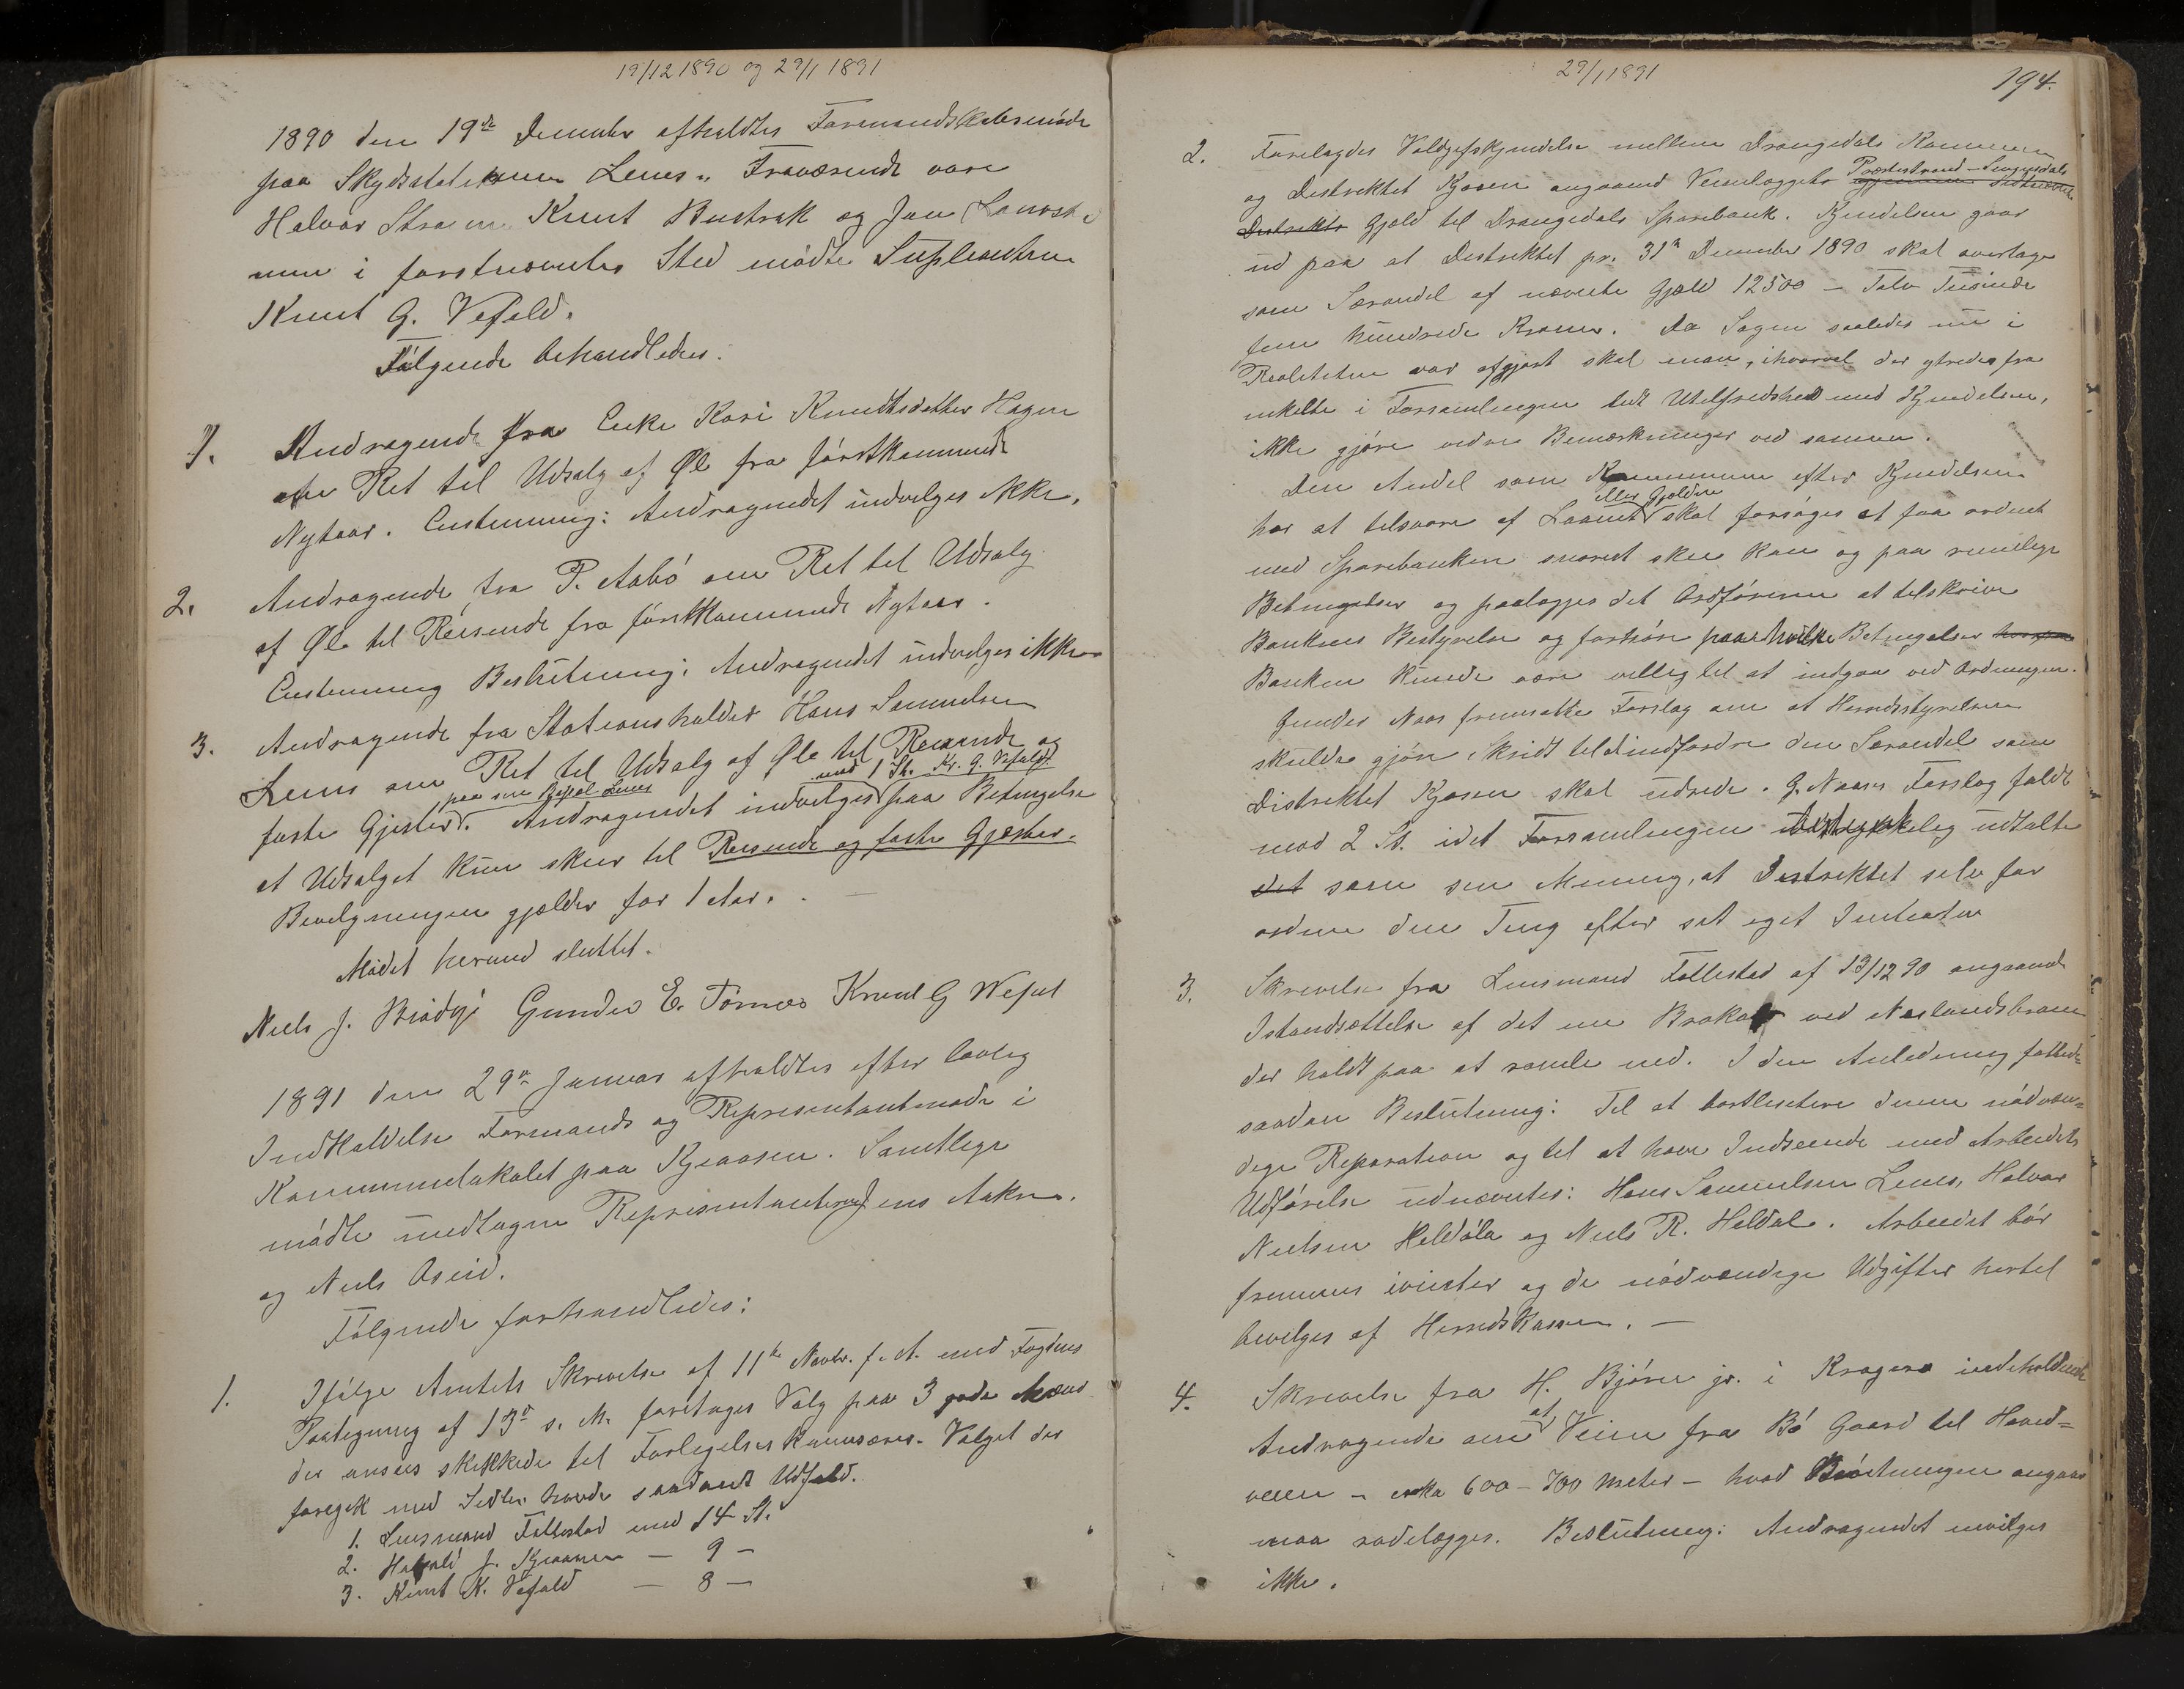 19/12 1890 og 29/1 1891
1890 den 19de December afholdtes Formandskabsmöde
paa Skydsstationen Lenes. Fraværende vare
Halvor Straum Knut Bustrak og Jon
men i førstnævntes Sted mödte Suplenten
Knut G. Vefald.
Fölgende behandledes.
1. Andragende fra Enke Kari Knudtsdatter Hagen
om Ret til Udsalg af Øl fra förstkommende
Nytaar. Enstemmig: Andragendet indvilges ikke.
2. Andragende fra P. Aabö om Ret til Udsalg
af Øl til Reisende fra förstkommende Nytaar.
Enstemmig Beslutning: Andragendet indvilges ikke
3. Andragende fra Stationsholder Hans Samuelsen
Lenes om Ret til Udsalg af Øl til Reisende og
paa sin Bopæl Lenes mod 1 St. Kr. G. Vefald
faste Gjester. Andragendet indvilges paa Betingelse
at Udsalget kun skeer til Reisende og faste Gjæster.
Bevilgningen gjælder for 1 Aar. —
Mödet herved sluttet.
Niels J. Bródsjö Gunder E. Törnes Knut G Wefal
1891 den 29de Januar afholdtes efter lovlig
Indkaldelse Formands og Representantmöde i
Kommunelokalet paa Kjeaasen. Samtlige
mödte undtagen Representanterne Jens Aakre
og Niels Oseid.
Fölgende forhandledes:
1. Ifölge Amtets Skrivelse af 11te Novbr. f. A. med Fogdens
Paategning af 13de s. M. foretages Valg paa 3 gode Mænd
der ansees skikkede til Forligelseskommisærer. Valget der
foregik med Sedler havde saadant Udfald.
1. Lensmand Follestad med 14 St.
2. Harald J. Kjeaasen — 9 —
3. Knut N. Vefald — 8 —
29/1 1891
194.
2. Forelagdes Voldgifskjendelse mellem Drangedals Kommune
og Distriktet Kjosen angaaende Veianlæggets Præstestrand - Tingsdals
Distrikts Gjæld til Drangedals Sparebank. Kjendelsen gaar
ud paa at Distriktet pr. 31te December 1890 skal overtage
som Særandel af nævnte Gjæld 12500 — Tolv Tusinde
fem hundrede Kroner. Da Sagen saaledes nu i
Realiteten var afgjort skal man, ihvorvel der ytredes fra
enkelte i Forsamlingen lidt Utilfredshed med Kjendelsen,
ikke gjöre videre Bemærkninger ved samme.
Den Andel som Kommunen efter Kjendelsen
eller Gjælden
har at tilsvare af Laanet skal forsöges at faa ordnet
med Sparebanken snarest skee kan og paa rimelige
Betingelser og paalægges det Ordföreren at tilskrive
Bankens Bestyrelse og forhöre paa hvilke Betingelser hvorpaa
Banken kunde være villig til at indgaa ved Ordningen.
Gunder Naas fremsatte Forslag om at Herredsstyrelsen
skulde gjöre Skridt til at indfordre den Særandel som
Distriktet Kjosen skal udrede. G. Naas's Forslag faldt
mod 2 St. idet Forsamlingen udtrykkelig udtalte
det som sin Mening, at Distriktet selv faar
ordne den Ting efter sit eget Initiativ
3. Skrivelse fra Lensmand Follestad af 13/12 90 angaaende
Istandsættelse af det ene Brokar ved Neslandsbroen
der holdt paa at ramle ned. I den Anledning fattedes
saadan Beslutning: Til at bortlicitere denne nödven=
dige Reparation og til at have Indseende med Arbeidets
Udförelse udnævntes: Hans Samuelsen Lenes, Halvor
Nielsen Heldöla og Niels R. Heldal. Arbeidet bör
fremmes ivinter og de nödvendige Udgifter hertil
bevilges af Herredskassen. —
4. Skrivelse fra H. Björn jr. i Kragerø indeholdende
Andragende om at Veien fra Bö Gaard til Hoved=
veien - cirka 600 - 700 Meter - hvad Bröitningen angaar
maa rodelægges. Beslutning: Andragendet indvilges
ikke.